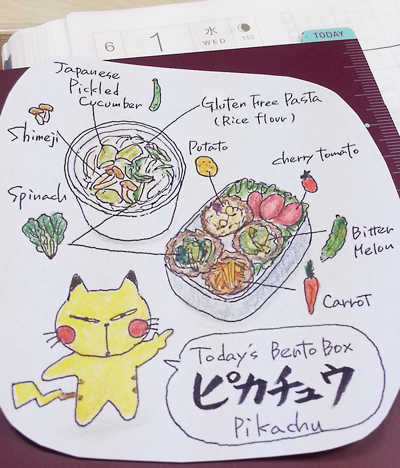 6
1
水
WED
152
TODAY
Japanese
Pickled
Cucumber
Gluten Free Pasta
(Rice flour)
Shimeji
Potato
cherry tomato
Spinach
Bitter
Melon
Carrot
Today's Bento Box
ピカチュウ
Pikachu